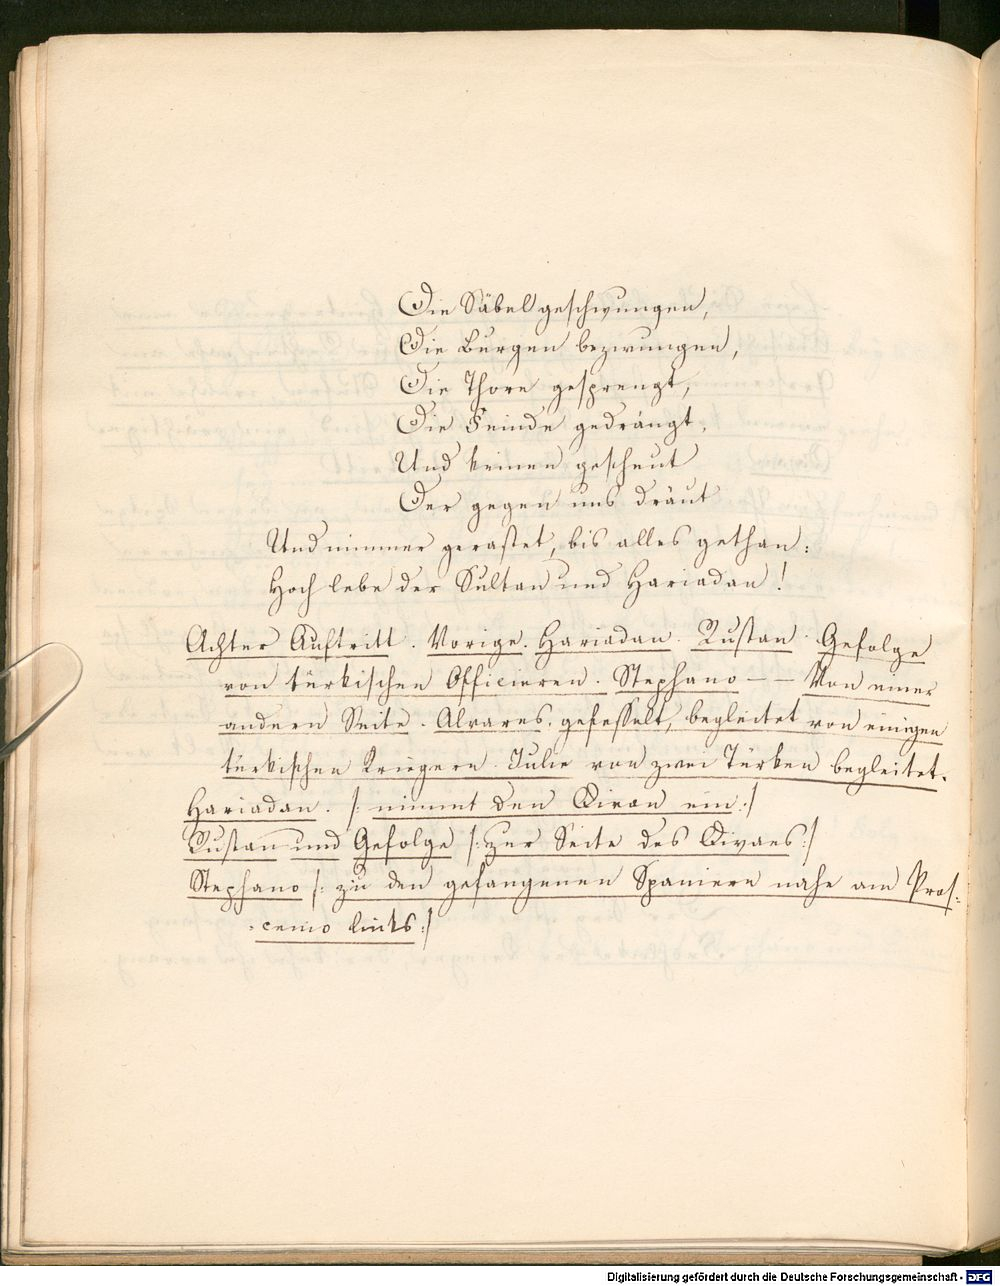 Die Säbel geschwungen,
Die Burgen bezwungen,
Die Thore gesprengt,
Die Feinde gedrängt,
Und keinen gescheut
Der gegen uns dräut
Und nimmer gerastet, bis alles gethan:
Hoch lebe der Sultan und Hariadan!
Achter Auftritt. Vorige. Hariadan. Rustan. Gefolge
von türkischen Officieren. Stephano – – Von einer
andern Seite. Alvares, gefesselt, begleitet von einigen
türkischen Kriegern. Julie von zwei Türken begleitet.
Hariadan. /: nimmt den Divan ein :/
Rustan und Gefolge /: zur Seite des Divans :/
Stephano /: zu den gefangenen Spaniern nahe am Pros-
cenio links :/
Digitalisierung gefördert durch die Deutsche Forschungsgemeinschaft - DFG